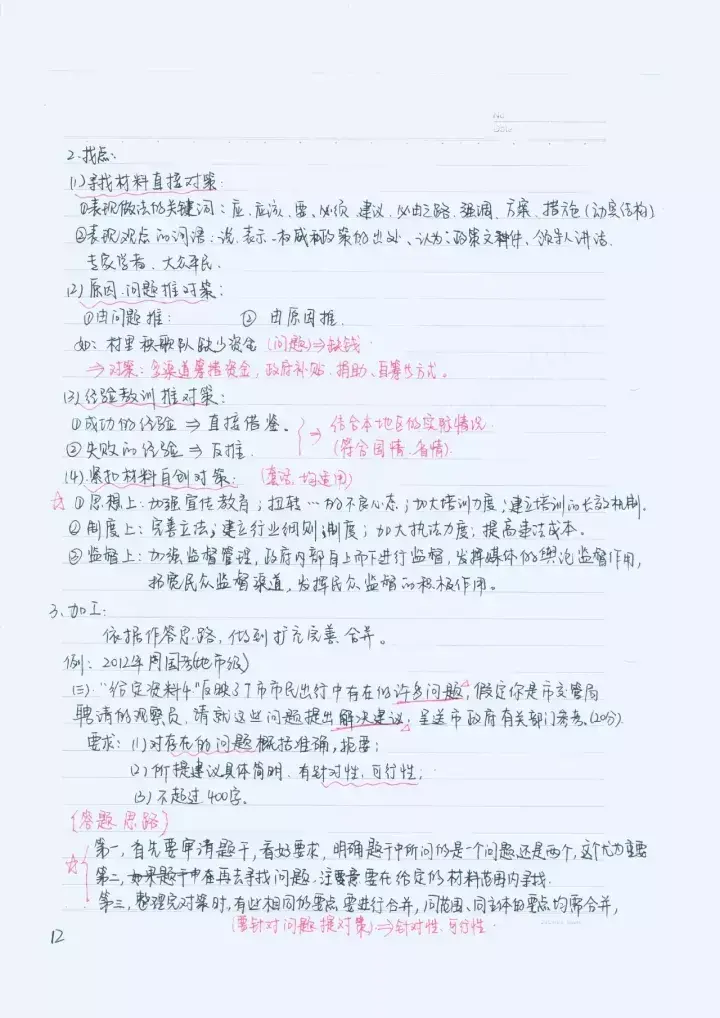 No.
Date
2.找点:
(1)寻找材料直接对策:
①表现做法的关键词:应、应该、要、必须、建议、必由之路、强调、方案、措施(动宾结构)
②表现观点的词语:说、表示、权威和政策的出处、认为;政策文件、领导人讲话、
专家学者、大众平民.
(2)原因、问题推对策:
①由问题推: ② 由原因推.
如:村里秧歌队缺少资金 (问题)⇒缺钱
⇒对策:多渠道筹措资金,政府补贴、捐助、自筹等方式。
(3)经验教训推对策:
①成功的经验 ⇒ 直接借鉴。 ⇒ 结合本地区的实际情况.
②失败的经验 ⇒ 反推. (符合国情、省情)
(4).紧扣材料自创对策: (套话、均适用)
☆ ①思想上:加强宣传教育;扭转…的不良心态;加大培训力度;建立培训的长效机制.
②制度上:完善立法;建立行业细则;制度;加大执法力度;提高违法成本.
③监督上:加强监督管理,政府内部自上而下进行监督,发挥媒体的舆论监督作用,
拓宽民众监督渠道,发挥民众监督的积极作用。
3、加工:
依据作答思路,做到扩充完善、合并。
例:2012年 国考(地市级)
(三)."给定资料4"反映了市市民出行中存在的许多问题,假定你是市交管局
聘请的观察员,请就这些问题提出解决建议,呈送市政府有关部门参考.(20分)
要求:(1)对存在的问题概括准确,扼要;
(2)所提建议具体简明、有针对性、可行性;
(3)不超过400字。
(答题思路)
第一,首先要审清题干,看好要求,明确题干中所问的是一个问题还是两个,这个尤为重要
☆ 第二,再去寻找问题,注意要在给定的材料范围内寻找.
第三,整理完对策时,有些相同的要点要进行合并,同范围、同主体的要点均需合并,
(要针对问题提对策)⇒针对性、可行性.
12